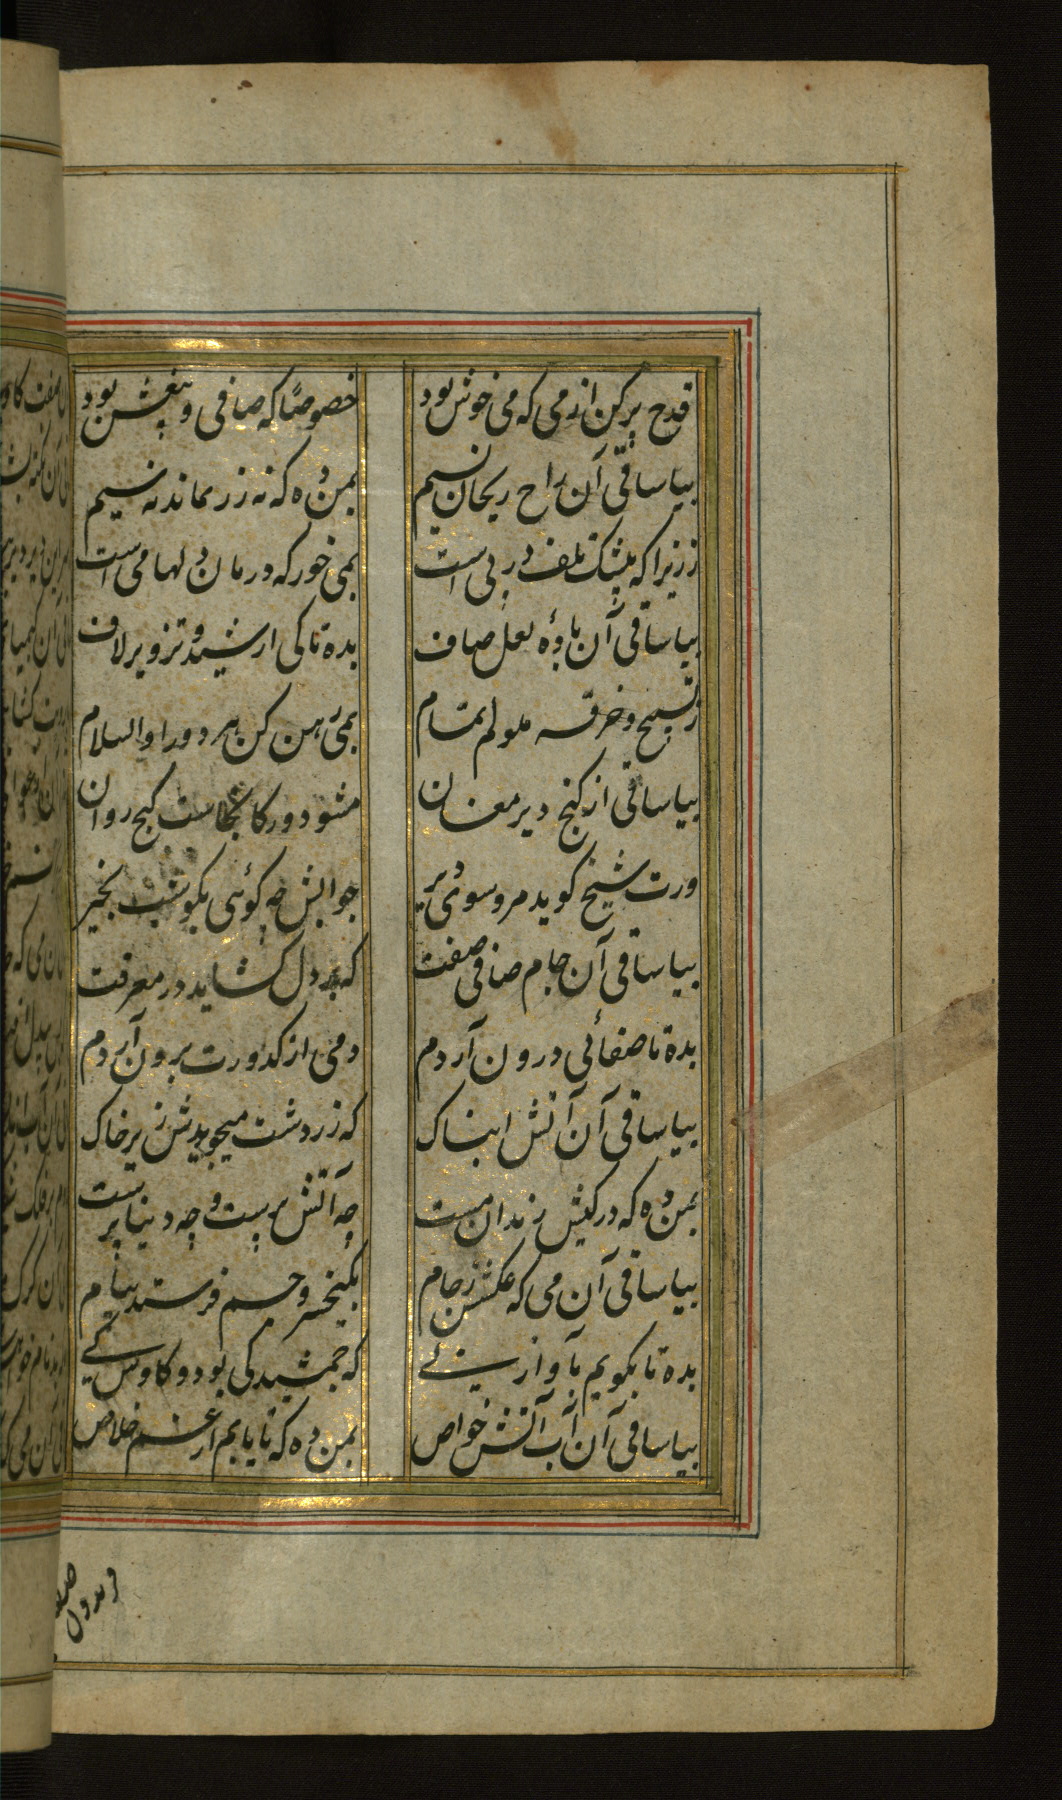 قدح پر کن از می که می خوش بود خصوصًا که صافی و بیغش بود
بیا ساقی آن راح ریحان نسیم بمن ده که نه زر بماند نه سیم
ززیرا که بیشک تلف در پی است بمی خور که درمان دلها می است
بیا ساقی آن بادهٔ لعل صاف بده تا کی از شید و تزویر لاف
ز تسبیح و خرقه ملولم تمام بمی رهن کن هر دو را والسلام
بیا ساقی از کنج دیر مغان مشو دور کانجاست کنج روان
ورت شیخ گوید مرو سوی دیر جوابش چه گوئی بگو شب بخیر
بیا ساقی آن جام صافی صفت که بر دل گشاید در معرفت
بده تا صفائی درون آردم دمی از کدورت برون آردم
بیا ساقی آن آتش ابناک که زردشت میجویدش زیر خاک
بمن ده که در کیش رندان مست چه آتش پرست و چه دنیا پرست
بیا ساقی آن می که عکسش ز جام بکیخسرو و جم فرستد پیام
بده تا بگویم بآواز نی که جمشید کی بود و کاوس کی
بیا ساقی آن آب آتش خواص بمن ده که تا یابم از غم خلاص